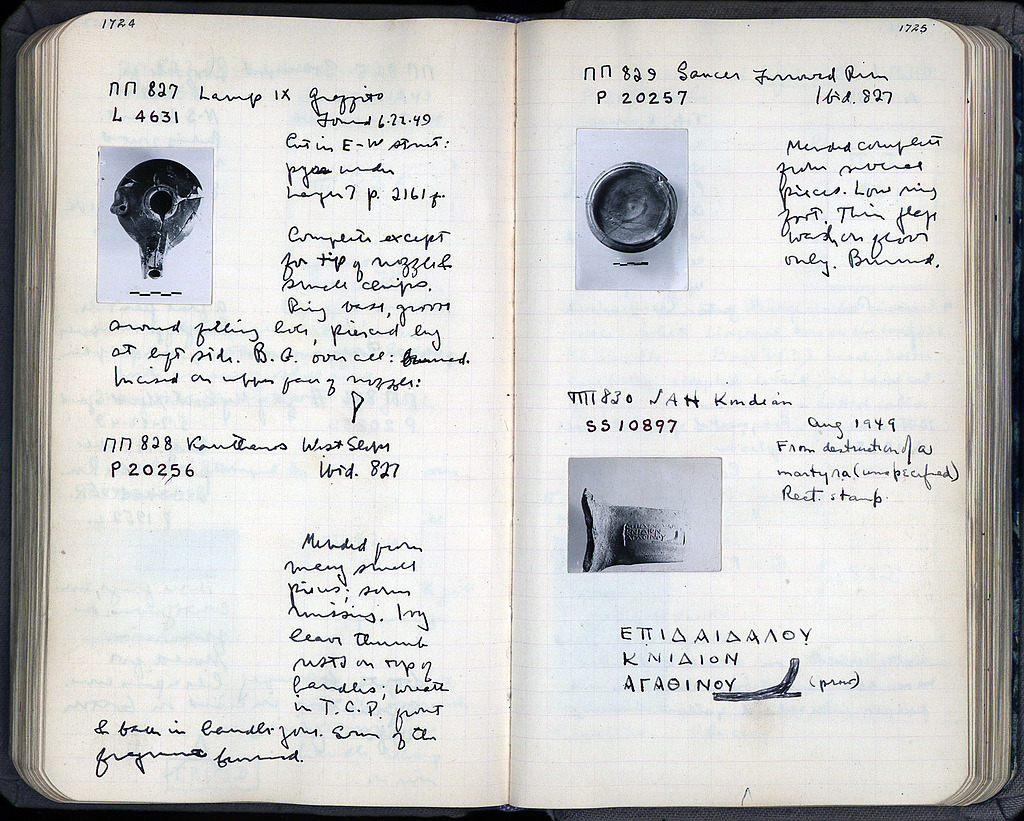 1724
ΠΠ 827 Lamp IX Graffito
L 4631 Found 6.22.49
Cut in E-W strut:
pyre under
Layer 7 p. 2161 f.
Complete except
for tip of nozzle &
small chips.
Ring base, groove
around filling hole, pierced lug
at left side. B.G. over all: burned.
Incised on upper face of nozzle:
ΠΠ 828 Kantharos West Slope
P 20256 Ibid. 827
Mended from
many small
pieces; some
missing. Ivy
leave thumb
rests on top of
handles; wreath
in T.C.P. front
& back in handle zone. Some of the
fragments burned.
1725
ΠΠ 829 Saucer Furrowed Rim
P 20257 Ibid. 827
Mended complete
from several
pieces. Low ring
foot. Thin glaze
wash on floor
only. Burned.
ΠΠ 830 SAH Knidian
SS 10897 Aug 1949
From destruction of a
martyra (unspecified)
Rect. stamp.
ΕΠΙΔΑΙΔΑΛΟΥ
ΚΝΙΔΙΟΝ
ΑΓΑΘΙΝΟΥ (prow)